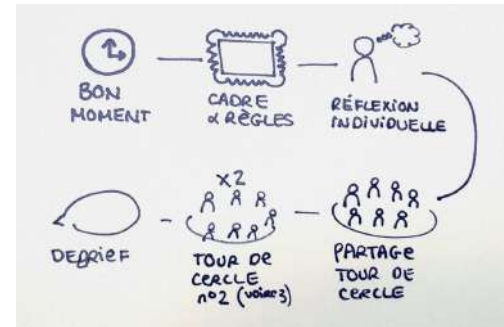 BON
MOMENT
CADRE
& RÈGLES
RÉFLEXION
INDIVIDUELLE
PARTAGE
TOUR DE
CERCLE
X2
TOUR DE
CERCLE
nº2 (voire 3)
DEBRIEF